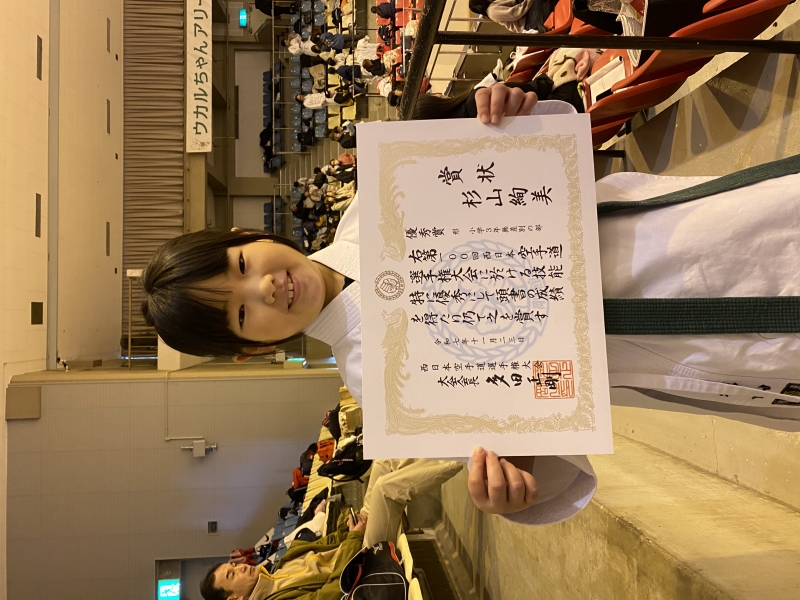 ウカルちゃんアリー
賞状
杉山絢美
優秀賞
形 小学3年無差別の部
右第一〇〇回西日本空手道
選手権大会に於ける技能
特に優秀にして頭書の成績
を得たり仍てみを賞す
令和七年十一月二三日
西日本空手道選手権大会
大会会長